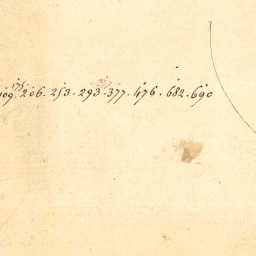 206. 253. 293. 377. 476. 682. 690